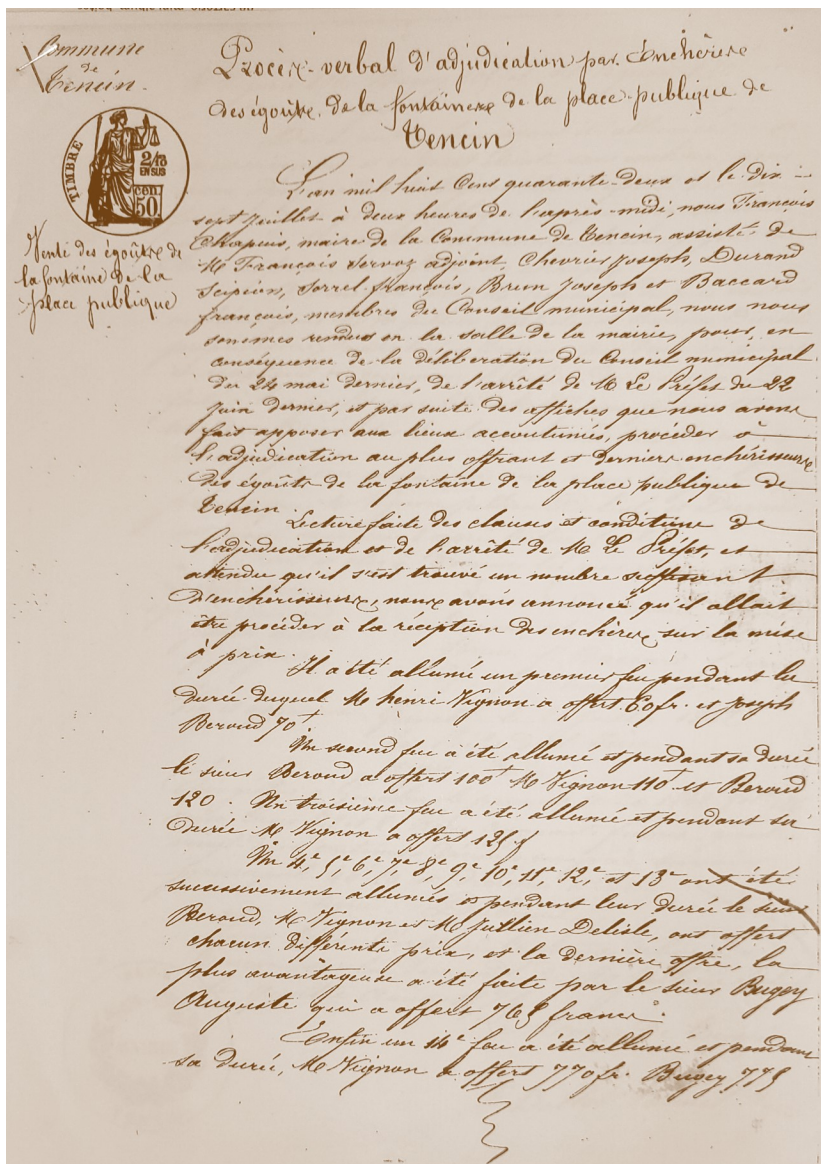 Commune
de
Tencin.
Procès-verbal d'adjudication par Enchères
des égoûts de la fontaines de la place publique de
Tencin
TIMBRE
2/10
EN SUS
CEN.
50
Vente des égoûts de
la fontaine de la
place publique
L'an mil huit Cens quarante-deux et le dix-
sept Juillet à deux heures de l'après-midi, nous François
Chapuis, maire de la Commune de Tencin, assisté de
M François Servoz adjoint Chevrier Joseph, Durand
Scipion, Sorrel françois, Brun Joseph et Baccard
françois, membres du Conseil municipal, nous nous
sommes rendus en la salle de la mairie, pour, en
conséquence de la délibération du Conseil municipal
du 24 mai dernier, de l'arrêté de M Le Préfet du 22
Juin dernier, et par suite des affiches que nous avons
fait apposer aux lieux accoutumés, procéder à
l'adjudication au plus offrant et derniers enchérisseurs
des égoûts de la fontaine de la place publique de
Tencin.
Lecture faite des clauses et conditions de
l'adjudication et de l'arrêté de M Le Préfet, et
attendu qu'il s'est trouvé un nombre suffisant
d'enchérisseurs, nous avons annoncé qu'il allait
être procéder à la réception des enchères sur la mise
à prix.
Il a été allumé un premier feu pendant la
durée duquel M henri Vignon a offert 60 fr. et Joseph
Beroud 70 f
Un second feu a été allumé et pendant sa durée
le sieur Beroud a offert 100 f M Vignon 110 f et Beroud
120. Un troisième feu a été allumé et pendant sa
durée M Vignon a offert 125 f
Un 4e, 5e, 6e, 7e, 8e, 9e, 10e, 11e, 12e, et 13e ont été
successivement allumés et pendant leur durée le sieur
Beroud, M Vignon et M Jullien Delisle, ont offert
chacun différents prix, et la dernière offre, la
plus avantageuse a été faite par le sieur Bugey
Auguste qui a offert 765 francs.
Enfin un 14e feu a été allumé et pendant
sa durée, M Vignon a offert 770 fr. Bugey 775